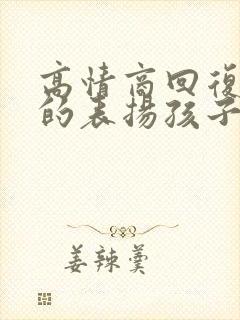 高情商回復
的表揚孩子
姜辣羹